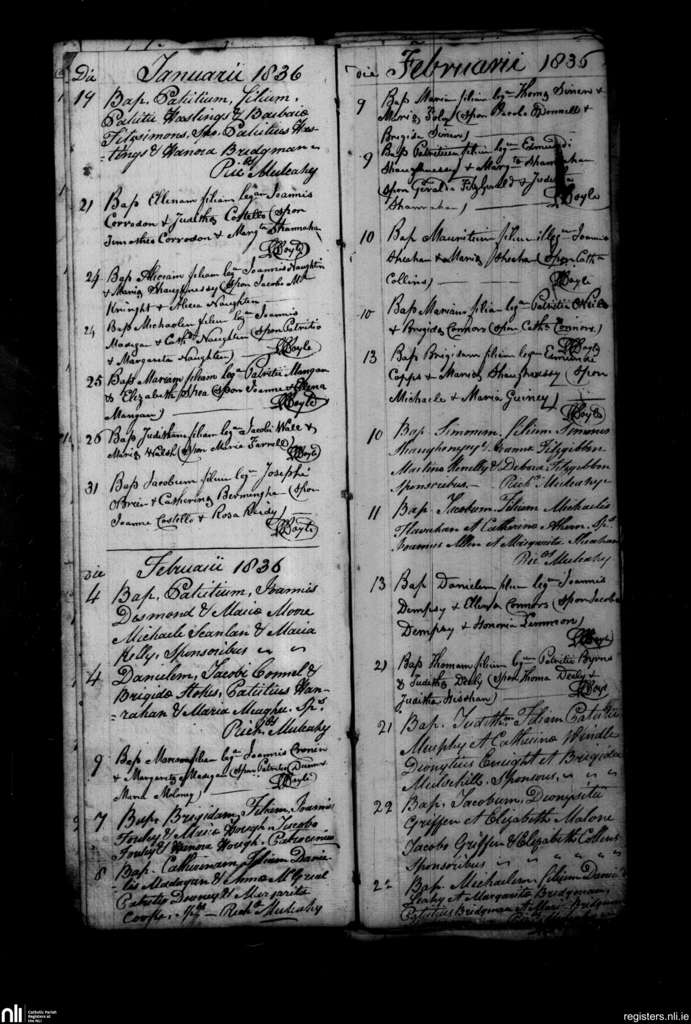 Die Januarii 1836
19 Bap. Patritium, filium,
Patritii Hastings & Barbaiæ
Fitzsimons, Sps. Patritius Has-
-tings & Hanora Bridgman
Richd Mulcahy
21 Bap Ellenam filiam legm Joannis
Corrodon & Judithæ Costello (Spon
Timotheo Corrodon & Margta Shannahan
P Boyle
24 Bap Aliciam filiam legm Joannis Naughtin
& Mariæ Shaughnessy (Spon Jacobo Mc
Knight & Alicia Naughten)
24 Bap Michaelem filium legm Joannis
Madigan & Cathæ Naughten (Spon Patritio
& Margareta Naughten) P Boyle
25 Bap Mariam filiam legm Patritii Mangan
& Elizabetha Shea (Spon Joanne &
Mangan) P Boyle
26 Bap Juditham filiam legm Jacobi Wall &
Mariæ Walsh (Spon Maria Farrell)
P Boyle
31 Bap Jacobum filium legm Josephi
O'Brien & Catherinæ Bermingham (Spon
Joanne Costello & Rosa Reidy)
P Boyle
Die Februarii 1836
4 Bap. Patritium, Joannis
Desmond & Mariæ Moore
Michaele Scanlan & Maria
Kelly, Sponsoribus
4 Danielem, Jacobi Connel &
Brigidæ Stokes, Patritius Han-
-rahan & Maria Meagher Sps
Richds Mulcahy
9 Bap filium legm Joannis Cronin
& Margaretæ Madigan (Spon Patritio Dunne &
Maria Molony) P Boyle
7 Bap. Brigidam, Filiam, Joannis
Fouhy & Maria Hough, Jacobo
Fouhy & Hanora Hough, Patrocinius
8 Bap. Catherinam, filiam Danie-
-lis Madigan & Annæ McGreal
Patritio Downey & Margarita
Coops, Sps — Richd Mulcahy
Die Februarii 1836
9 Bap Mariam filiam legm Thomæ Siners &
Mariæ Foly (Spon O'Donnell &
Brigida Siners)
9 Bap Patritium filium legm Edmundi
Shaughnessy & Margta Shannahan
(Spon Geraldo Fitzgerald & Juditha
Shannahan) P Boyle
10 Bap Mauritium filium illegm Joannis
Sheehan & Mariæ Sheehan (Spon Cathna
Collins) P Boyle
10 Bap Mariam filiam legm Patritii
& Brigidæ Connors (Spon Catha Connors)
P Boyle
13 Bap Brigidam filiam legm Edmundi
Copps & Mariæ Shaughnessy (Spon
Michaele & Maria Guiney)
P Boyle
10 Bap. Simonum, filium Simonis
Shaughnessy & Joanna Fitzgibbon
Martino & Debora Fitzgibbon
Sponsoribus — Richd Mulcahy
11 Bap. Jacobum, Filium Michaelis
Hanrahan et Catherina Ahern, Sps
Joannes Allen et Margarita Sheahan
Ricds Mulcahy
13 Bap Danielem filium legm Joannis
Dempsy & Ellenæ Connors (Spon Jacobo
Dempsy & Honoria Lemmon)
P Boyle
21 Bap Thomam filium legm Patritii Byrns
& Judithæ Deely (Spon Thoma Deely &
Juditha) P Boyle
21 Bap. Judithm Filiam Patritii
Murphy et Catherinæ Windle
Dionytius Enright et Brigida
Sponsors,
22 Bap. Jacobum, Dionysii
Griffen et Elizabeth Malone
Jacobo Griffen & Elizabeth Collens
Sponsoribus
22 Bap. Michaelem filium Daniel
Leahy et Margarita Bridgman,
Patritius Bridgman et Mari- Bridgman
nli Catholic Parish
Registers at
the NLI
registers.nli.ie